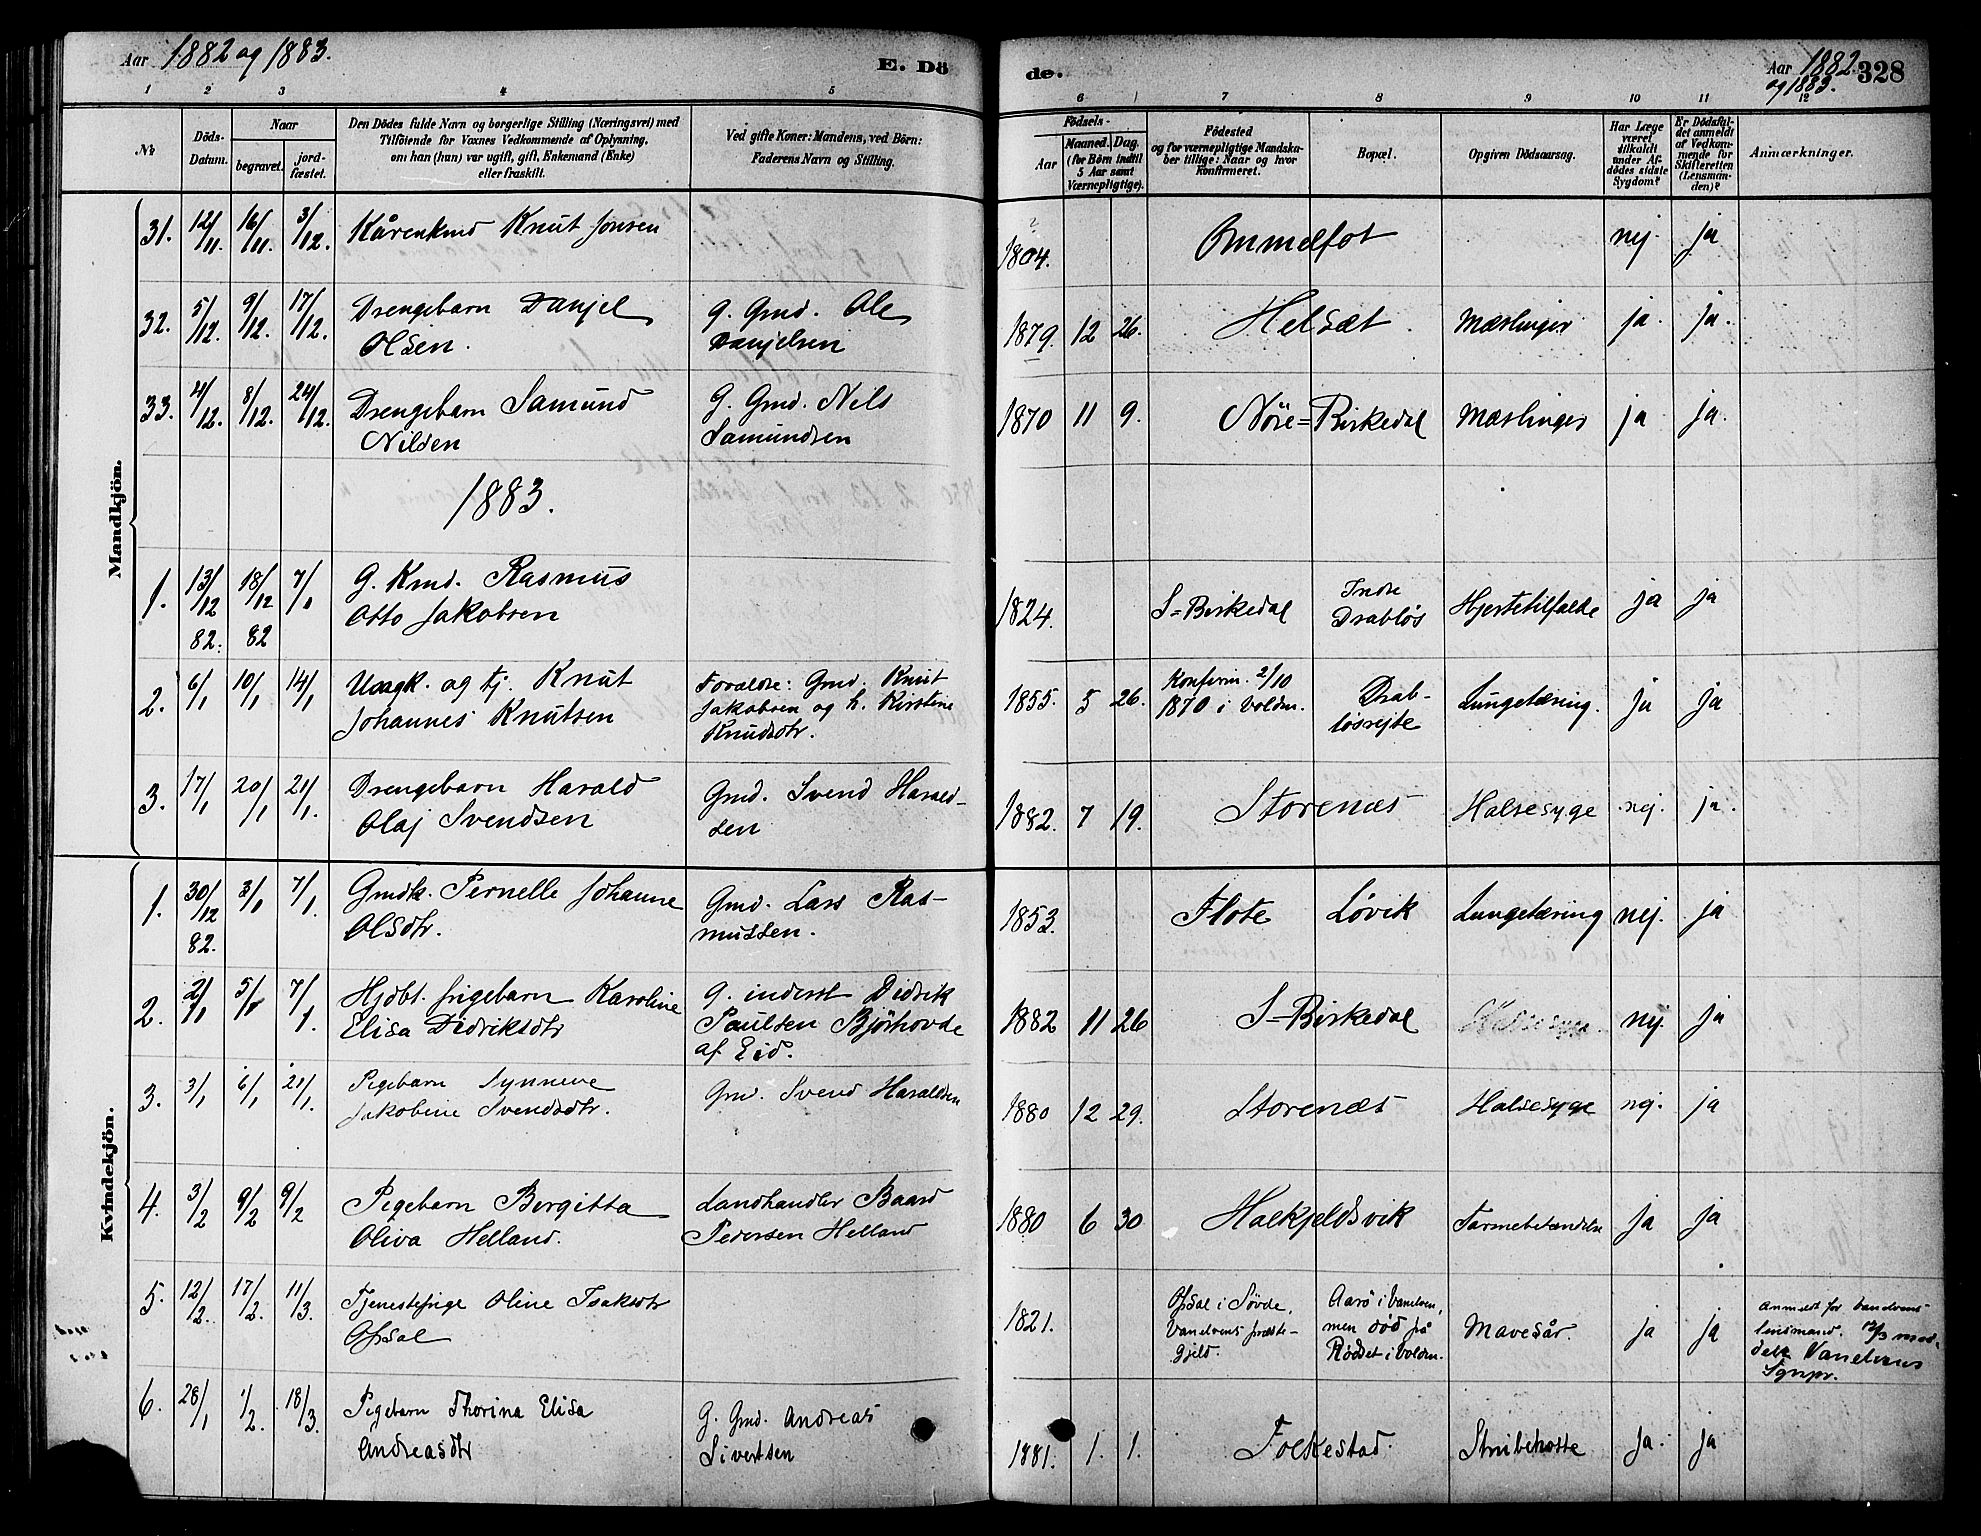 Aar 1882 og 1883.
E. Dö
de.
Aar 1882 og 1883.
328
1 2 3 4 5
6 7 8 9 10 11 12
№
Döds-Datum.
Naar
begravet.
jord-fæstet.
Den Dödes fulde Navn og borgerlige Stilling (Næringsvei) med
Tilföiende for Voxnes Vedkommende af Oplysning,
om han (hun) var ugift, gift, Enkemand (Enke)
eller fraskilt.
Ved gifte Koner: Mandens, ved Börn:
Faderens Navn og Stilling.
Födsels-
Aar
Maaned. Dag.
(for Börn indtil
5 Aar samt
Værnepligtige).
Födested
og for værnepligtige Mandska-
ber tillige: Naar og hvor
konfirmeret.
Bopæl.
Opgiven Dödsaarsag.
Har Læge
været
tilkaldt
under Af-
dödes sidste
Sygdom?
Er Dödsfal-
det anmeldt
af Vedkom-
mende for
Skifteretten
(Lensman-
den)?
Anmærkninger.
Mandkjön.
31. 12/11. 16/11. 3/12. Kårenkmd Knut Jonsen 1804. Ommelfot nej. ja
32. 5/12. 9/12. 17/12. Drengebarn Danjel G. Gmd. Ole 1879. 12 26. Helsæt. Mæslinger ja. ja.
Olsen. Danjelsen
33. 4/12. 8/12. 24/12. Drengebarn Samund G. Gmd. Nils 1870 11 9. Nöre=Birkedal Mæslinger ja ja.
Nilsen Samundsen
1883.
1. 13/12 82. 18/12 82 7/1 G. Kmd. Rasmus 1824. S=Birkedal Indre Hjertetilfælde ja ja
Otto Jakobsen Drabløs
2. 6/1 10/1 14/1 Ungk. og tj. Knut Forældre: Gmd. Knut 1855. 5 26. Konfirm. 2/10 Drab- Lungetæring. ja ja
Johannes Knutsen Jakobsen og h. Kirstine 1870 i Voldm. løsrejte
Knudsdtr.
3. 17/1 20/1 21/1. Drengebarn Harald Gmd. Svend Harald- 1882. 7 19. Storenæs Halsesyge nej. ja.
Olaj Svendsen sen
Kvindekjön.
1. 30/12 82. 3/1 7/1. Gmdk. Pernelle Johanne Gmd. Lars Ras- 1853. Flote Løvik Lungetæring nej. ja
Olsdtr. mussen.
2. 2/1 5/1 7/1. Hjdbt. Pigebarn Karoline G. inderst Didrik 1882 11 26 S=Birkedal Halsesyge. nej. ja
Elisa Didriksdtr Paulsen Bjørhovde
af Eid.
3. 3/1 6/1 21/1. Pigebarn Synneve Gmd. Svend Haraldsen 1880 12 29. Storenæs Halsesyge nej. ja
Jakobine Svendsdtr.
4. 3/2 9/2 9/2 Pigebarn Bergitta Landhandler Baard 1880 6 30 Halkjeldsvik Tarmebetændelse ja ja
Oliva Helland. Pedersen Helland
5. 12/2. 17/2. 11/3 Tjenestepige Oline Isaksdtr 1821. Ofsal i Søvde, Aarö i Vanelven, Mavesår. ja ja Anmeldt for Vanelvens
Ofsal Vanelvens præste- men död på lensmand. 12/3 med-
gjeld. Röddet i Voldm. delt Vanelvens
Sgnpr.
6. 28/1 1/2. 18/3. Pigebarn Thorina Elisa G. Gmd. Andreas 1881. 1. 1. Folkestad. Strubehoste ja. ja
Andreasdtr Sivertsen